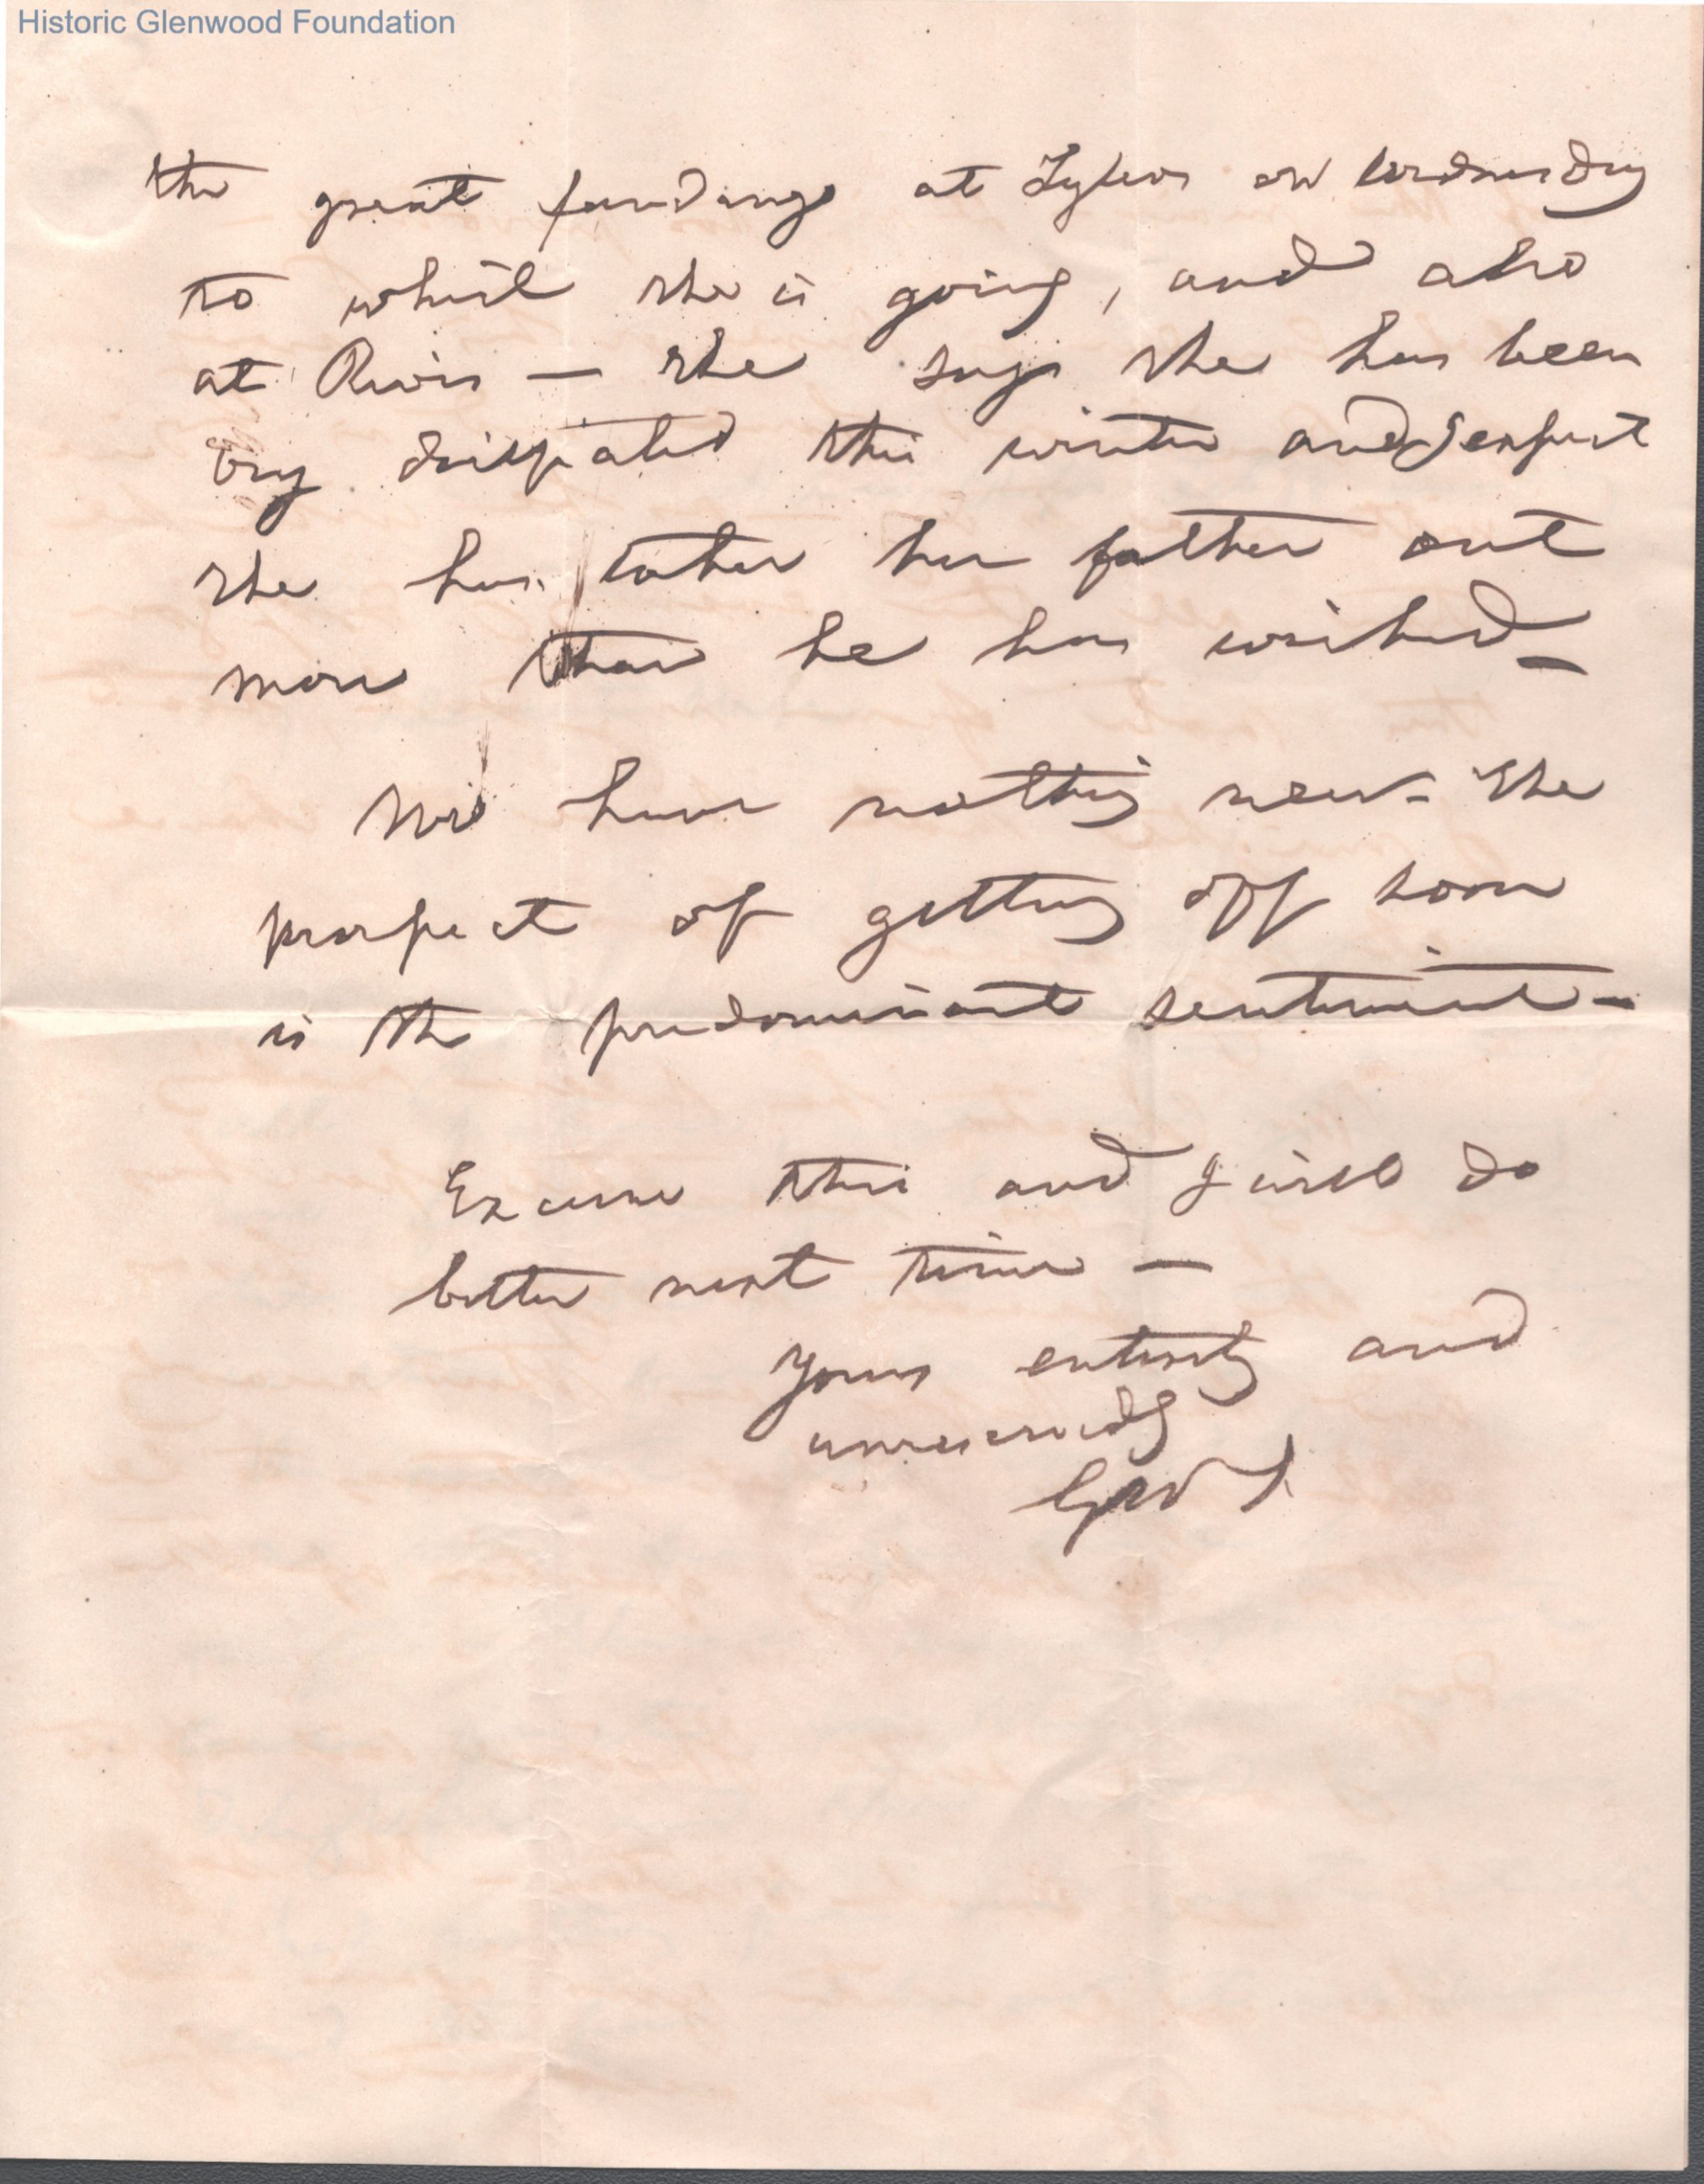 Historic Glenwood Foundation
the great fandango at Tylers on Wednesday
to which she is going, and also
at Rives — she says she has been
very dissipated this winter and I expect
she has taken her father out
more than he has wished —
We have nothing new - The
prospect of getting off soon
is the predominant sentiment —
Excuse this and I will do
better next time —
Yours entirely and
unreservedly